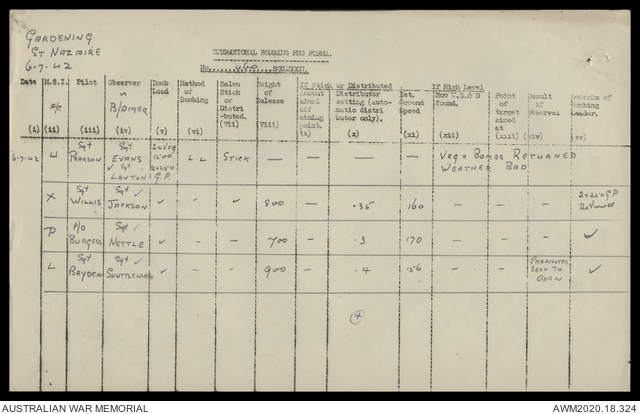 GARDENING
ST NAZAIRE
6-7-42
OPERATIONAL BOMBING PRO FORMA.
No. 460 SQUADRON.
Date M.S.I. Pilot Observer Bomb Load Method of Bombing Salvo Stick or Distributed. Height of Release If Stick or Distributed If High Level Result if observed Remarks of Bombing Leader.
A/C B/AIMER Amount aimed off aiming point. Distributor setting (automatic distributor only). Est. Ground Speed How U.S.&D found. Point of target aimed at
(i) (ii) (iii) (iv) (v) (vi) (vii) (viii) ix) (x) (xi) (xii) (xiii) (xiv) (xv)
6-7-42 U Sgt PEARSON Sgt EVANS ✓ Sgt LAWTON 2xVeg. 1500 2x250 G.P. L.L STICK — — — — VEG & BOMBS RETURNED WEATHER BAD
X Sgt WILLIS Sgt ✓ JACKSON ✓ - ✓ 800 — .35 160 — — — 2x250 G.P Returned
P P/O BURGESS Sgt ✓ NETTLE ✓ - - 700 — .3 170 — — — ✓
L Sgt BRYDEN Sgt ✓ SHUTTLEWORTH ✓ - - 900 — .4 156 — — PARACHUTES SEEN TO OPEN ✓
AUSTRALIAN WAR MEMORIAL
AWM2020.18.324